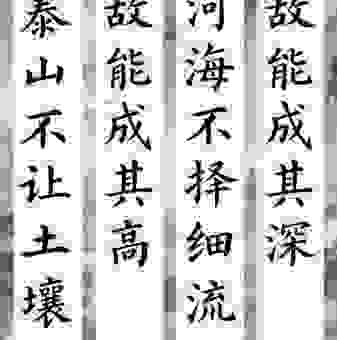 泰山不让土壤
故能成其高
河海不择细流
故能成其深